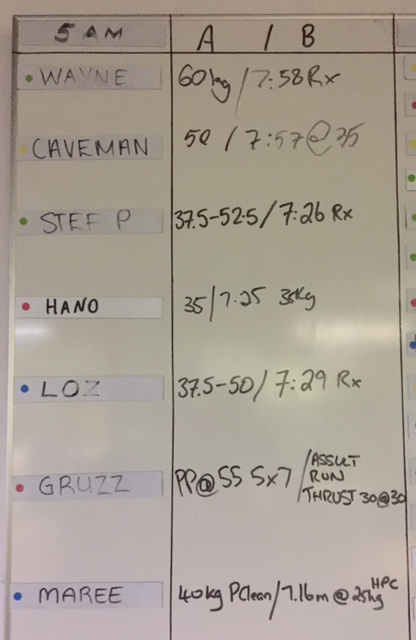 5 AM A / B
WAYNE 60kg / 7:58 Rx
CAVEMAN 50 / 7:57 @ 35
STEF P 37.5-52.5 / 7:26 Rx
HANO 35 / 7.25 35kg
LOZ 37.5-50 / 7:29 Rx
GRUZZ PP@55 5x7 / ASSULT
RUN
THRUST 30@30
MAREE 40kg PClean / 7.16m @ 25kg HPC